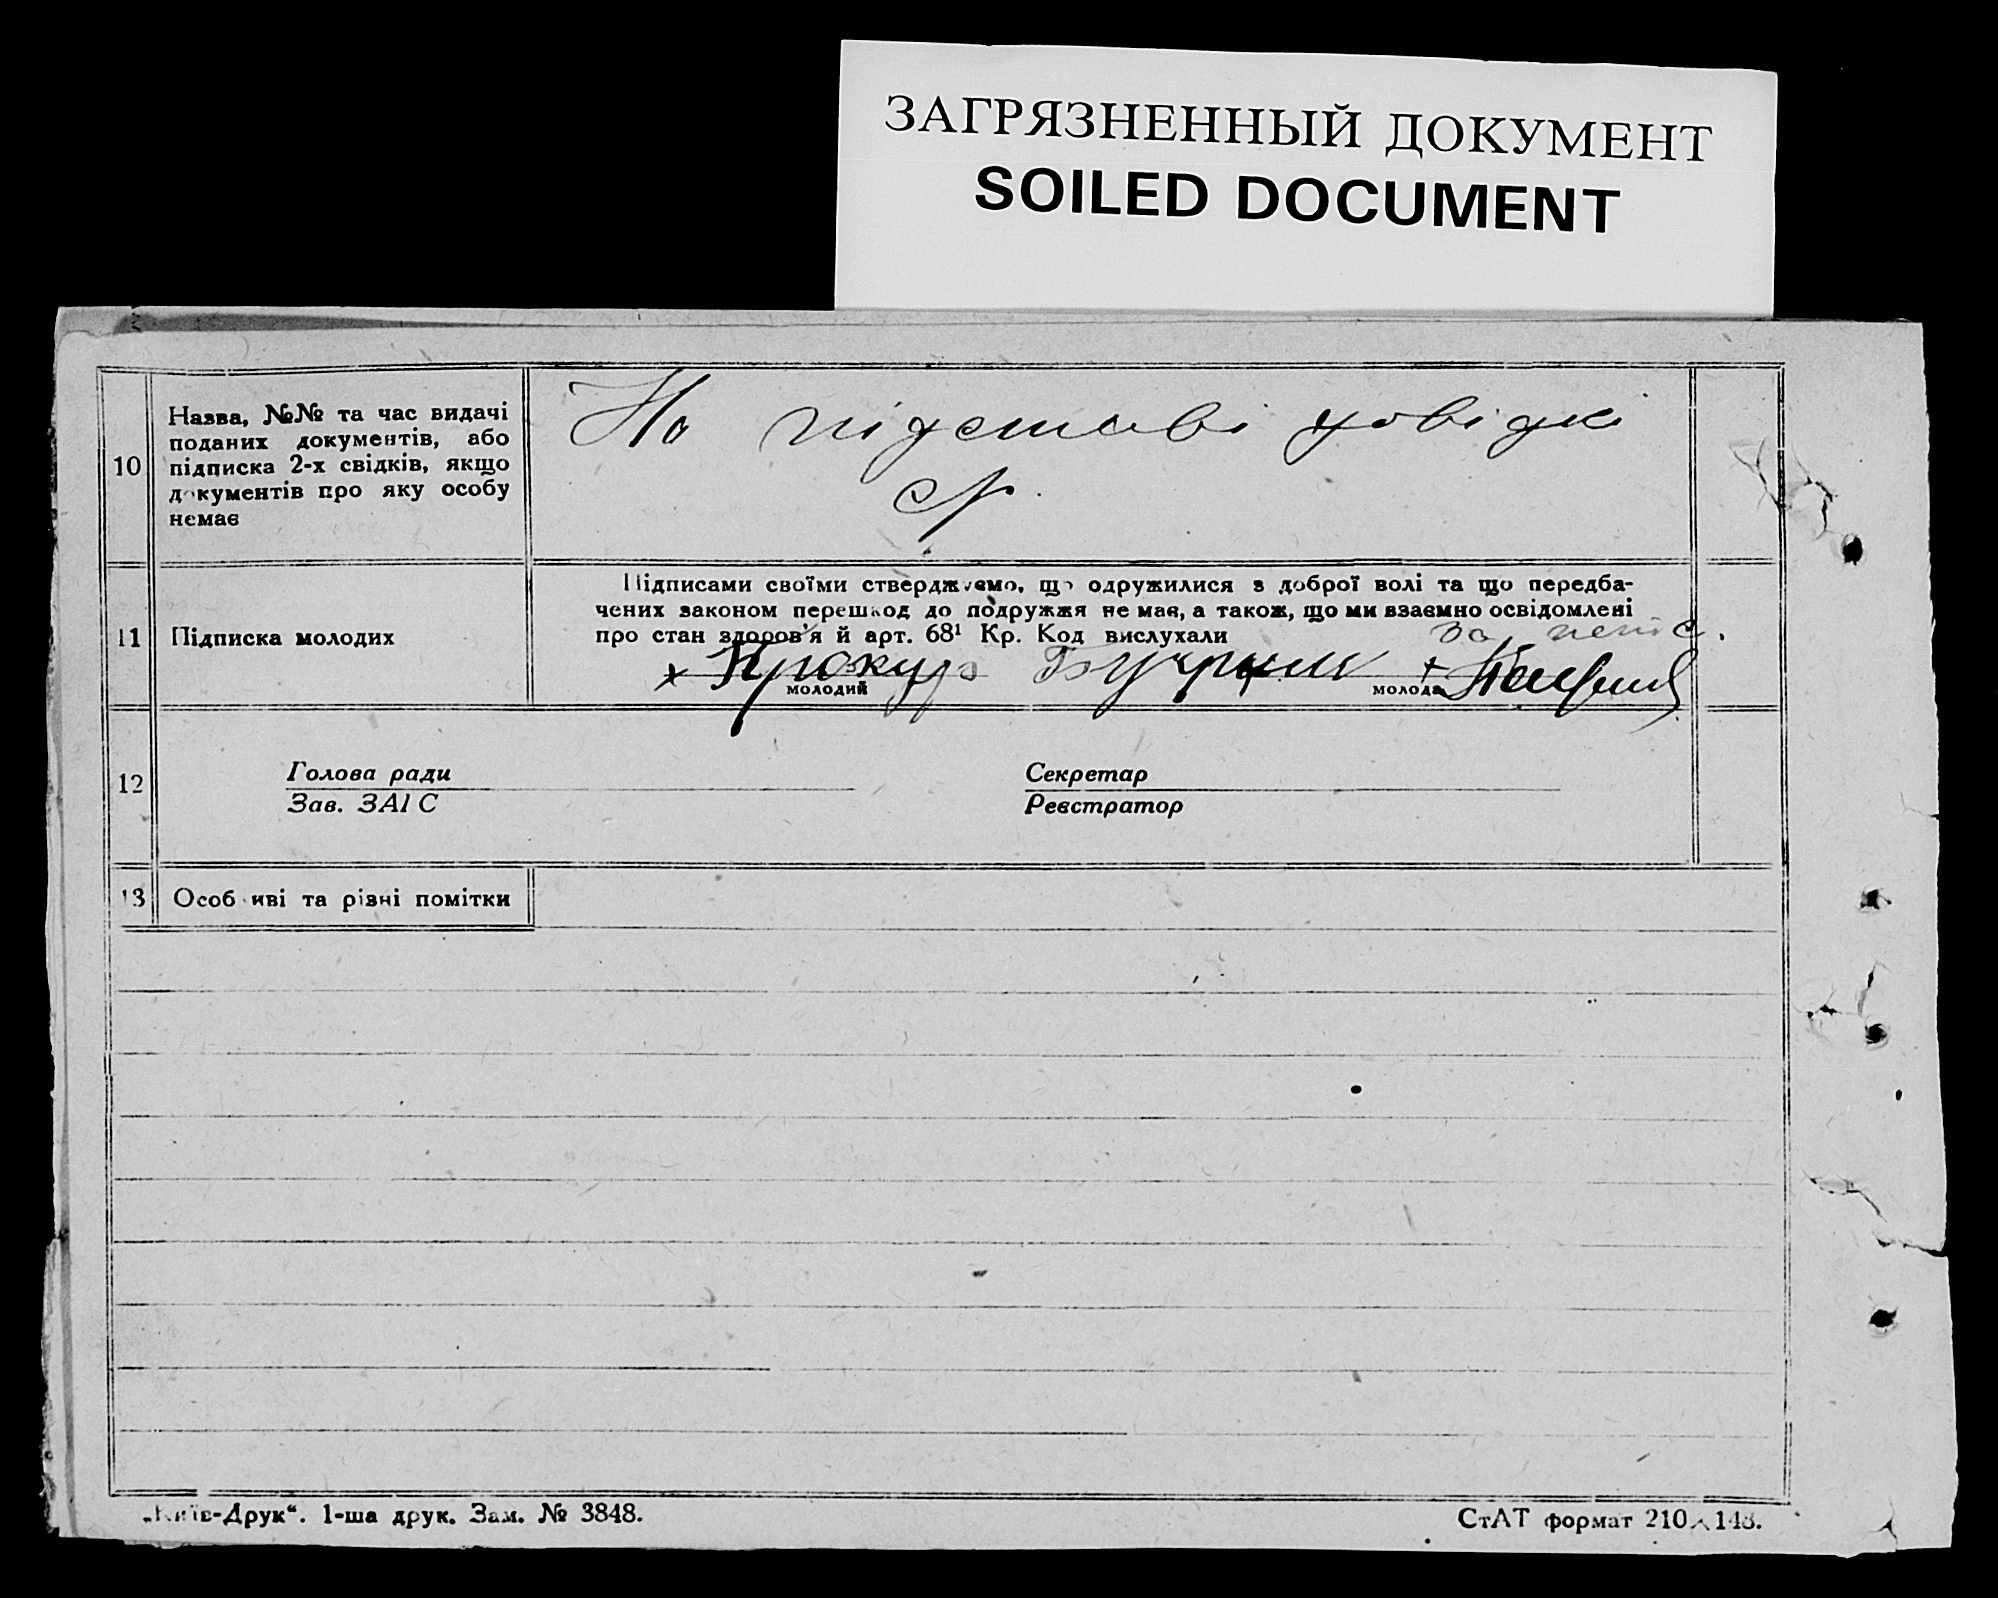 ЗАГРЯЗНЕННЫЙ ДОКУМЕНТ
SOILED DOCUMENT
10
Назва, №№ та час видачі
поданих документів, або
підписка 2-х свідків, якщо
документів про яку особу
немає
На підставі довідки
11
Підписка молодих
Підписами своїми стверджуємо, що одружилися з доброї волі та що передба-
чених законом перешкод до подружжя не має, а також, що ми взаємно освідомлені
про стан здоров'я й арт. 68¹ Кр. Код вислухали
за
х
молодий
молода
12
Голова ради
Зав. ЗАГС
Секретар
Реєстратор
13
Особливі та різні помітки
„Київ-Друк“. 1-ша друк. Зам. № 3848.
СтАТ формат 210×148.